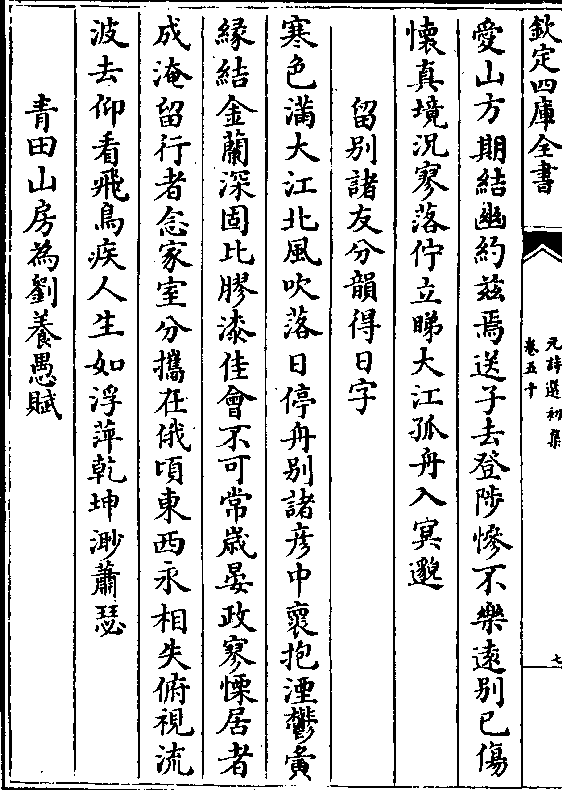 欽定四庫全書
元詩選初集
卷五十
七
愛山方期結幽約兹焉送子去登陟慘不樂遠别已傷
懷真境況寥落佇立睇大江孤舟入冥邈
留别諸友分韻得日字
寒色滿大江北風吹落日停舟别諸彦中襄抱湮鬱夤
緣結金蘭深固比膠漆佳會不可常歳晏政寥慄居者
成淹留行者念家室分攜在俄頃東西永相失俯視流
波去仰看飛鳥疾人生如浮萍乾坤渺蕭瑟
青田山房為劉養愚賦